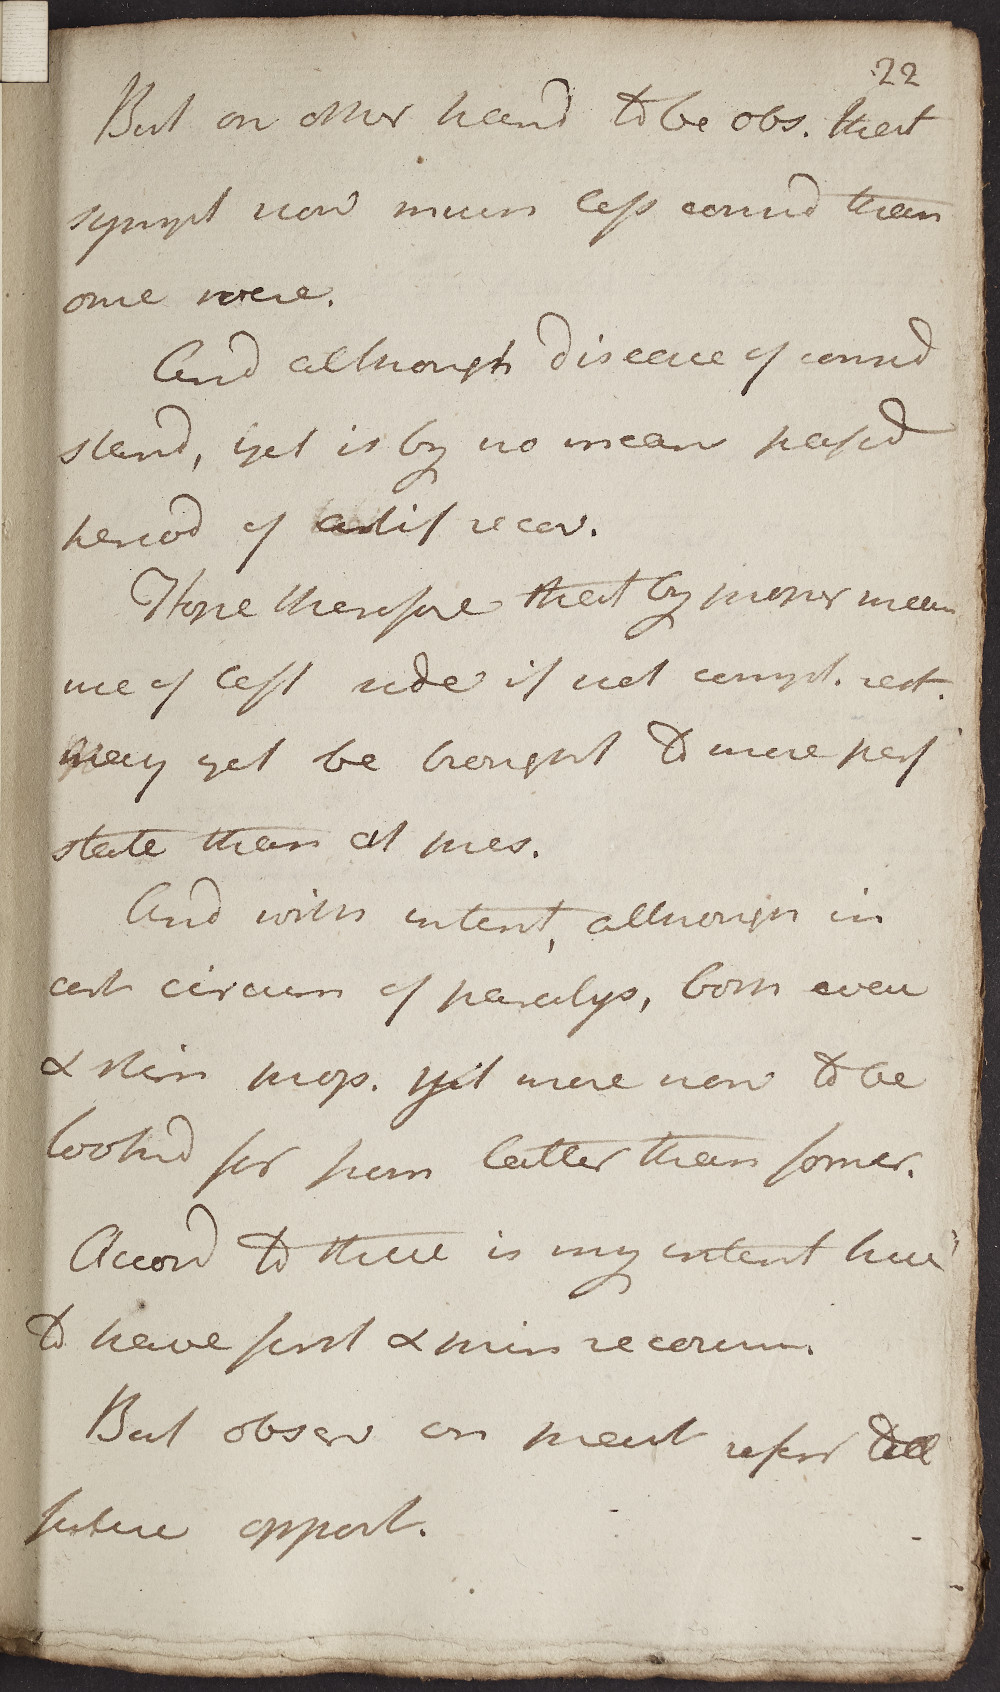 22
But on other hand to be obs. that
sympt now much less consid than
once were.
And although disease of consid
stand, yet is by no mean passd
period of artif recov.
Hope therefore that by proper mean
use of left side if not compl. rest.
may yet be brought to more perf
state than at pres.
And with intent, although in
cert circum of paralys, both even
& stim prop. yet more now to be
lookd for from latter than former.
Accord to these is my intent here
to have first & prin recourse.
But obser on pract refer till
future opport.